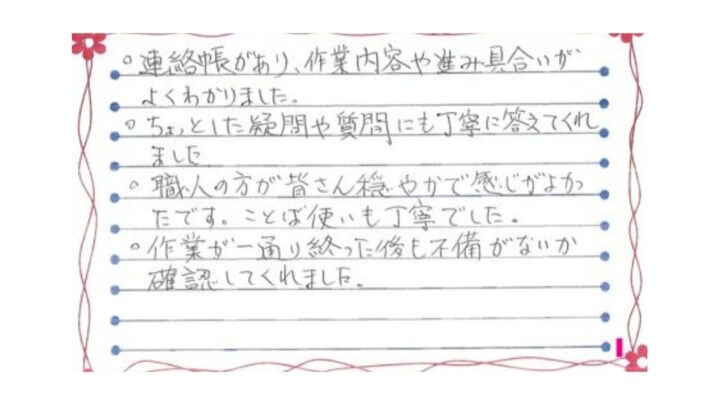 ○連絡帳があり、作業内容や進み具合いが
よくわかりました。
○ちょっとした疑問や質問にも丁寧に答えてくれ
ました
○職人の方が皆さん穏やかで感じがよかっ
たです。ことば使いも丁寧でした。
○作業が一通り終った後も不備がないか
確認してくれました。